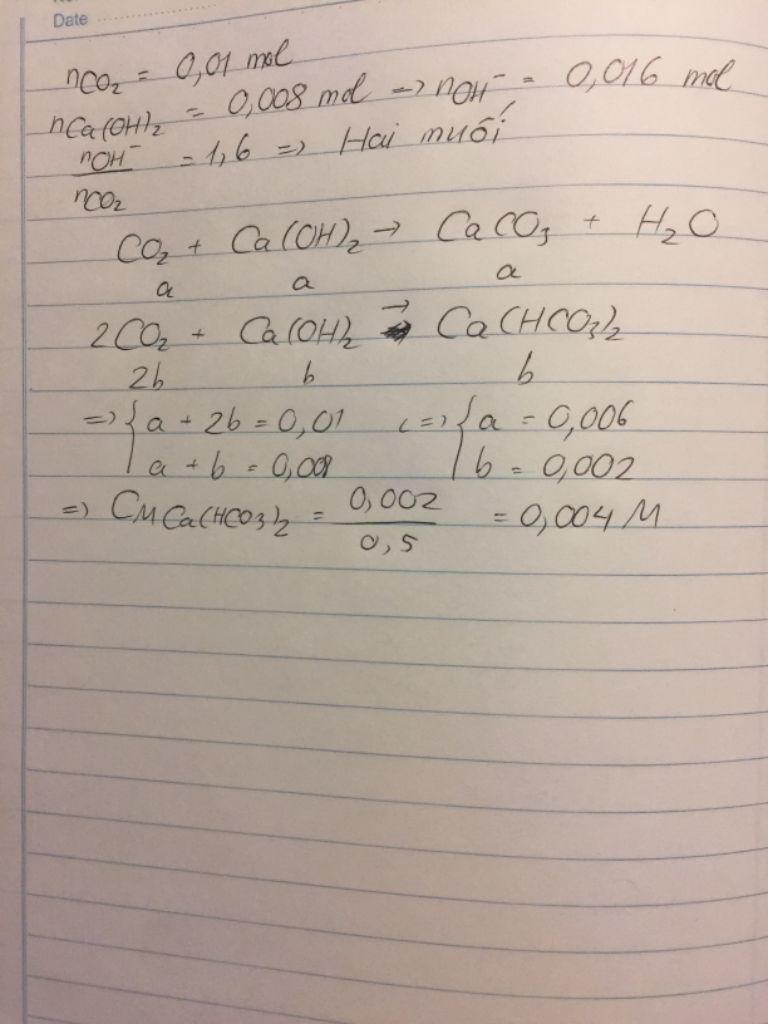 Date
nCO₂ = 0,01 mol
nCa(OH)₂ = 0,008 mol → nOH⁻ = 0,016 mol
nOH⁻/nCO₂ = 1,6 => Hai muối
CO₂ + Ca(OH)₂ → CaCO₃ + H₂O
a a a
2CO₂ + Ca(OH)₂ → Ca(HCO₃)₂
2b b b
=> { a + 2b = 0,01 <=> { a = 0,006
a + b = 0,008 b = 0,002
=> CM Ca(HCO₃)₂ = 0,002/0,5 = 0,004 M